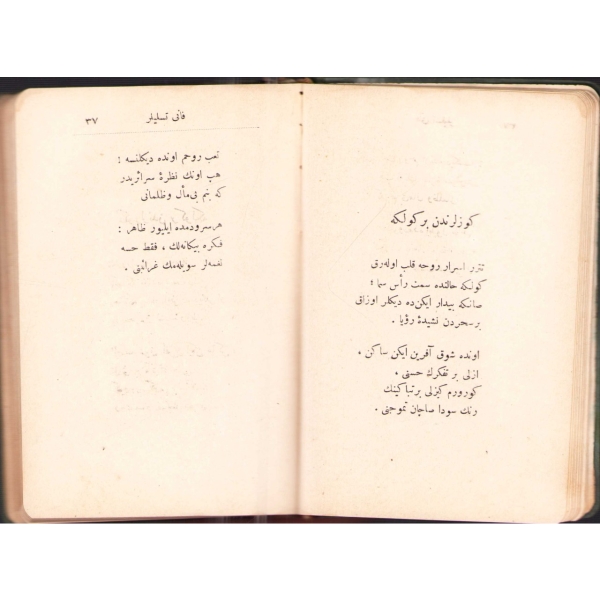 فانی تسلیلر
٣٧
تعب روحم اونده دیكلنسه :
هب اونك نظرۀ سرائریدر
كه بنم بی‌مأل وظلمانی
هرسرودمده ایلیور ظاهر :
فكره بیكانه‌لك ، فقط حسه
نغمه‌لر سویله‌مك غرائبنی .
كوزلرندن بر كولكه
تترر اسرار روحه قلب اوله‌رق
كولكه حالنده سمت رأس سما ؛
صانكه بیدار ایكن‌ده دیكلر اوزاق
بر سحردن نشیدۀ رؤیا .
اونده شوق آفرین ایكن ساكن ،
ازلی بر تفكرك حسنی ،
كورورم كیزلی بر تباكینك
رنك سودا صاچان تموجنی .